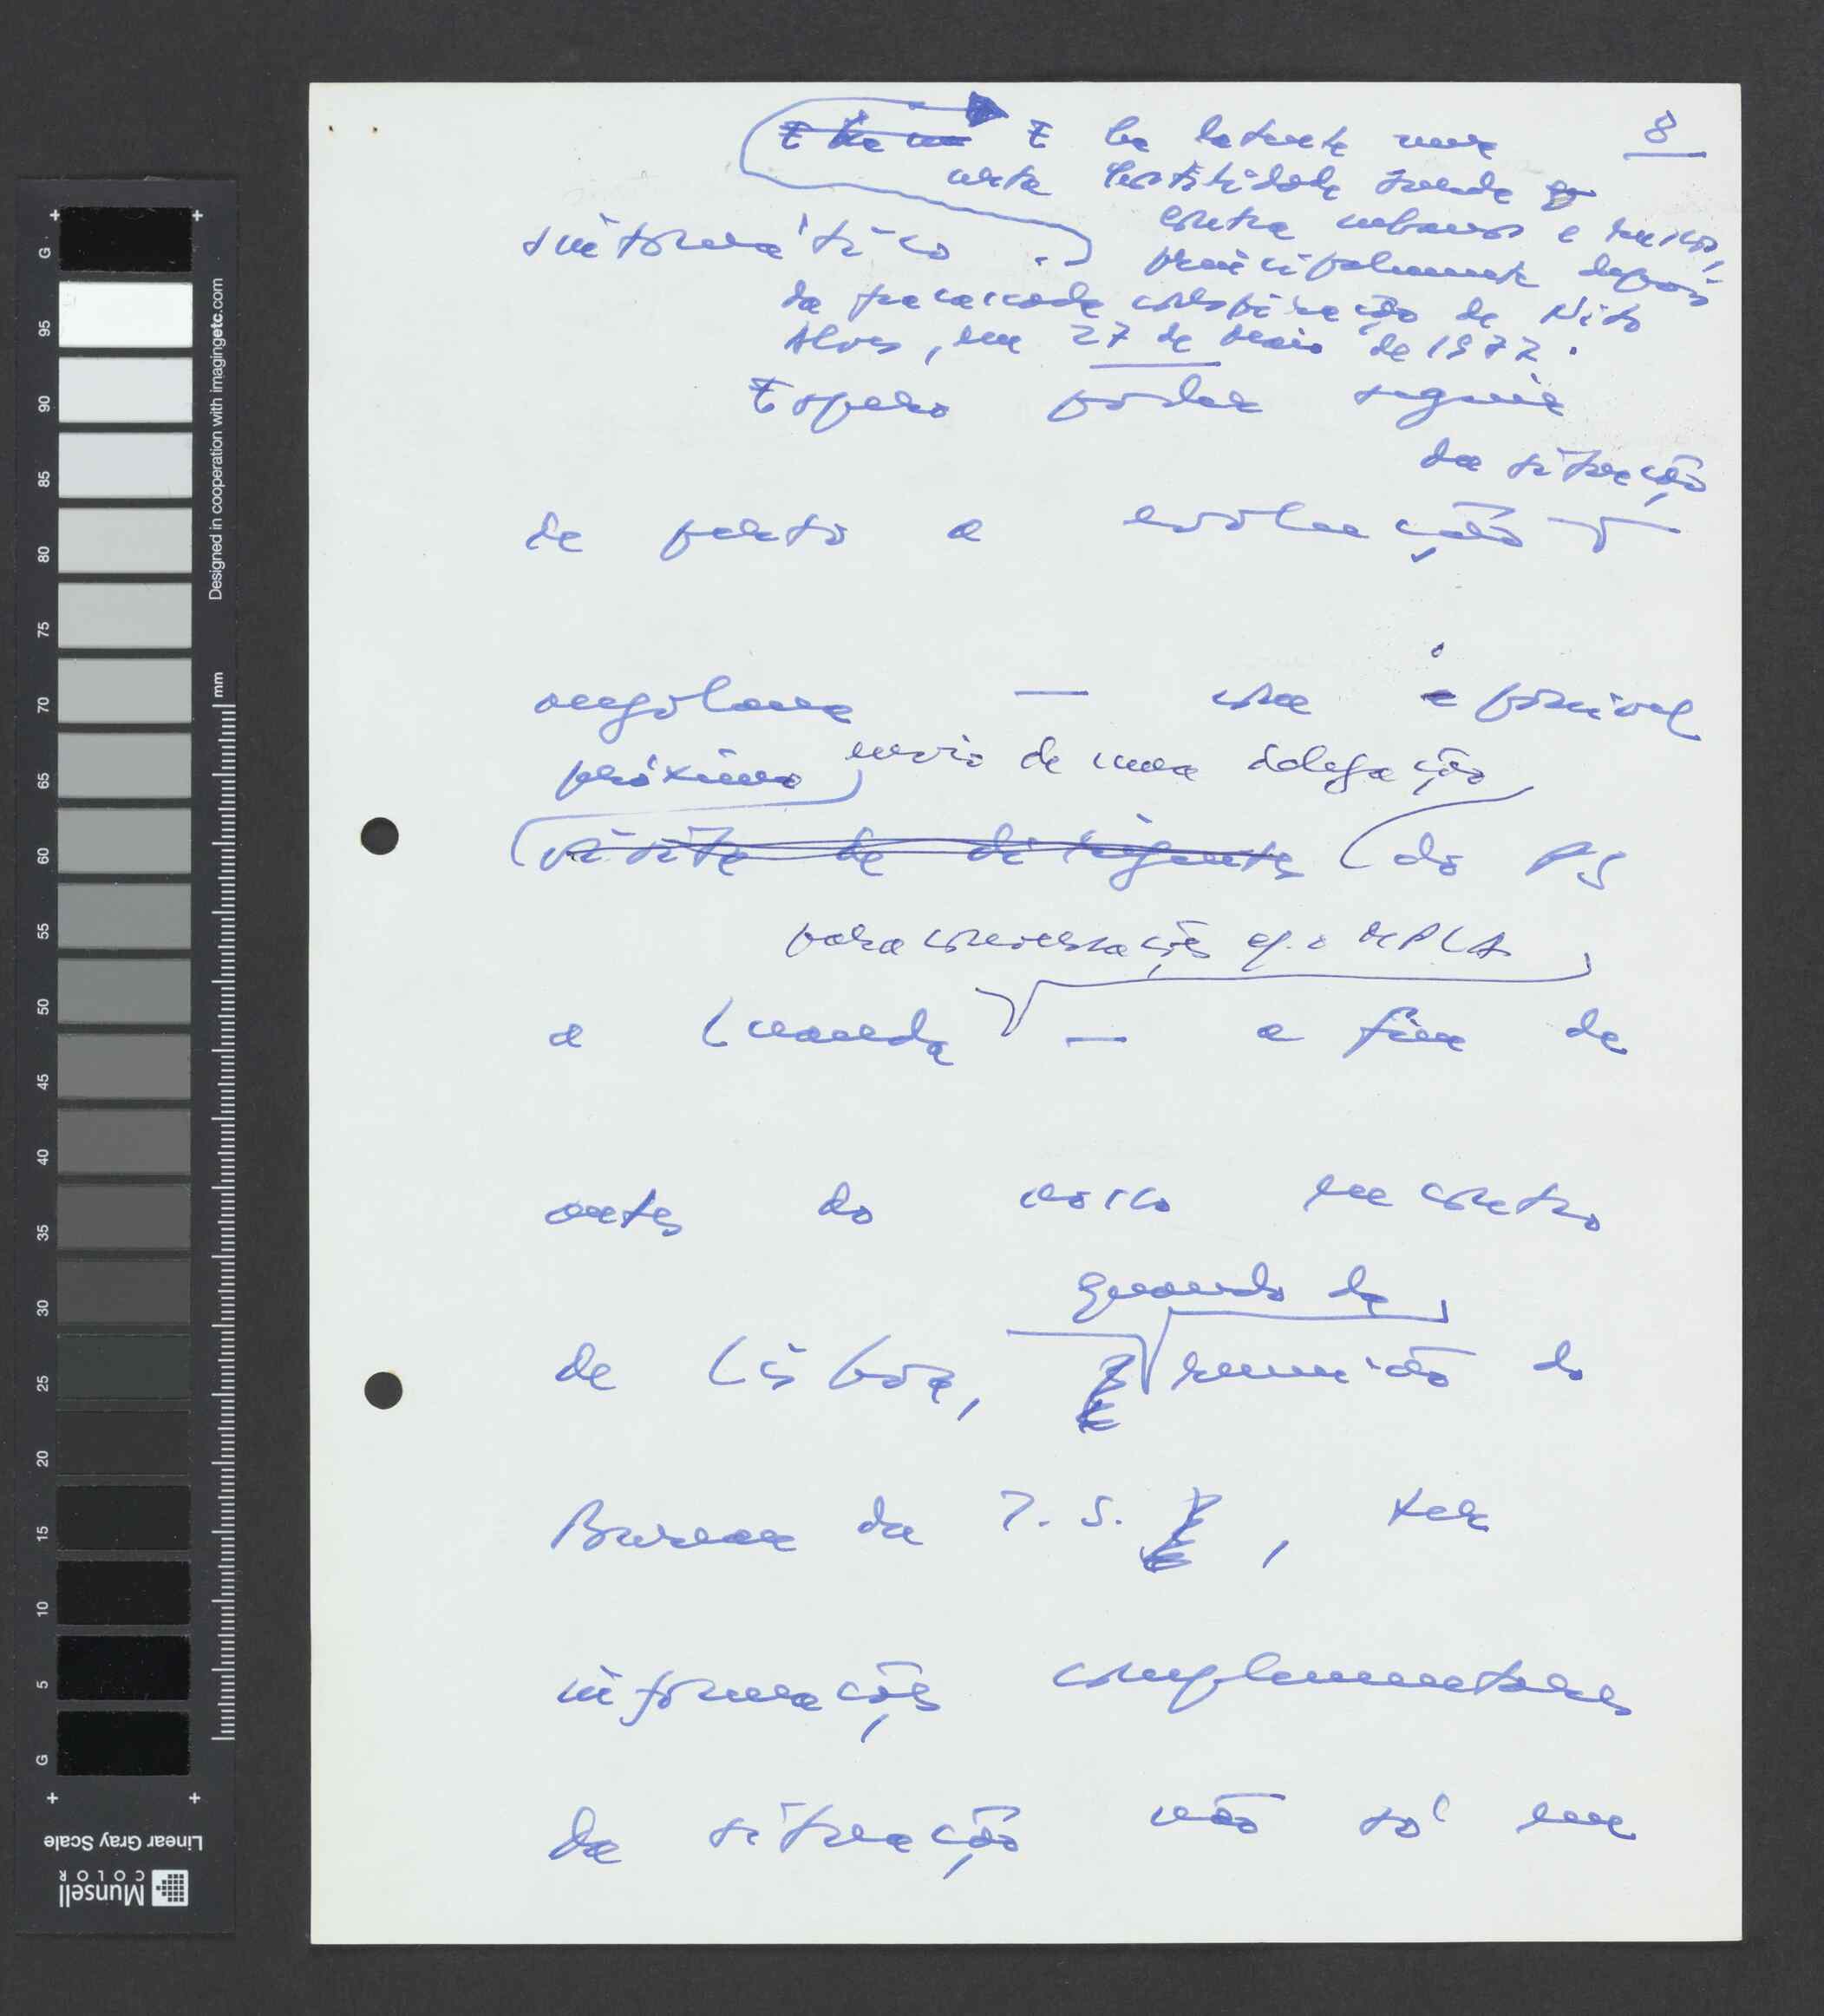 8
E há latente uma
certa hostilidade surda
contra cubanos e russos,
sintomático principalmente depois
da fracassada conspiração de Nito
Alves, em 27 de Maio de 1977.
Espero poder seguir
da situação
de perto a evolução
angolana — com a possível
próximo envio de uma delegação
visita de dirigentes do PS
para conversações c/. o MPLA
a Luanda — a fim de
antes do nosso encontro
quando da
de Lisboa, reunião do
Bureau da I. S. , ter
informações complementares
da situação não só em
G
95
90
85
80
75
70
65
60
55
50
45
40
35
30
25
20
15
10
5
G
Designed in cooperation with imagingetc.com
mm
Linear Gray Scale
Munsell
COLOR